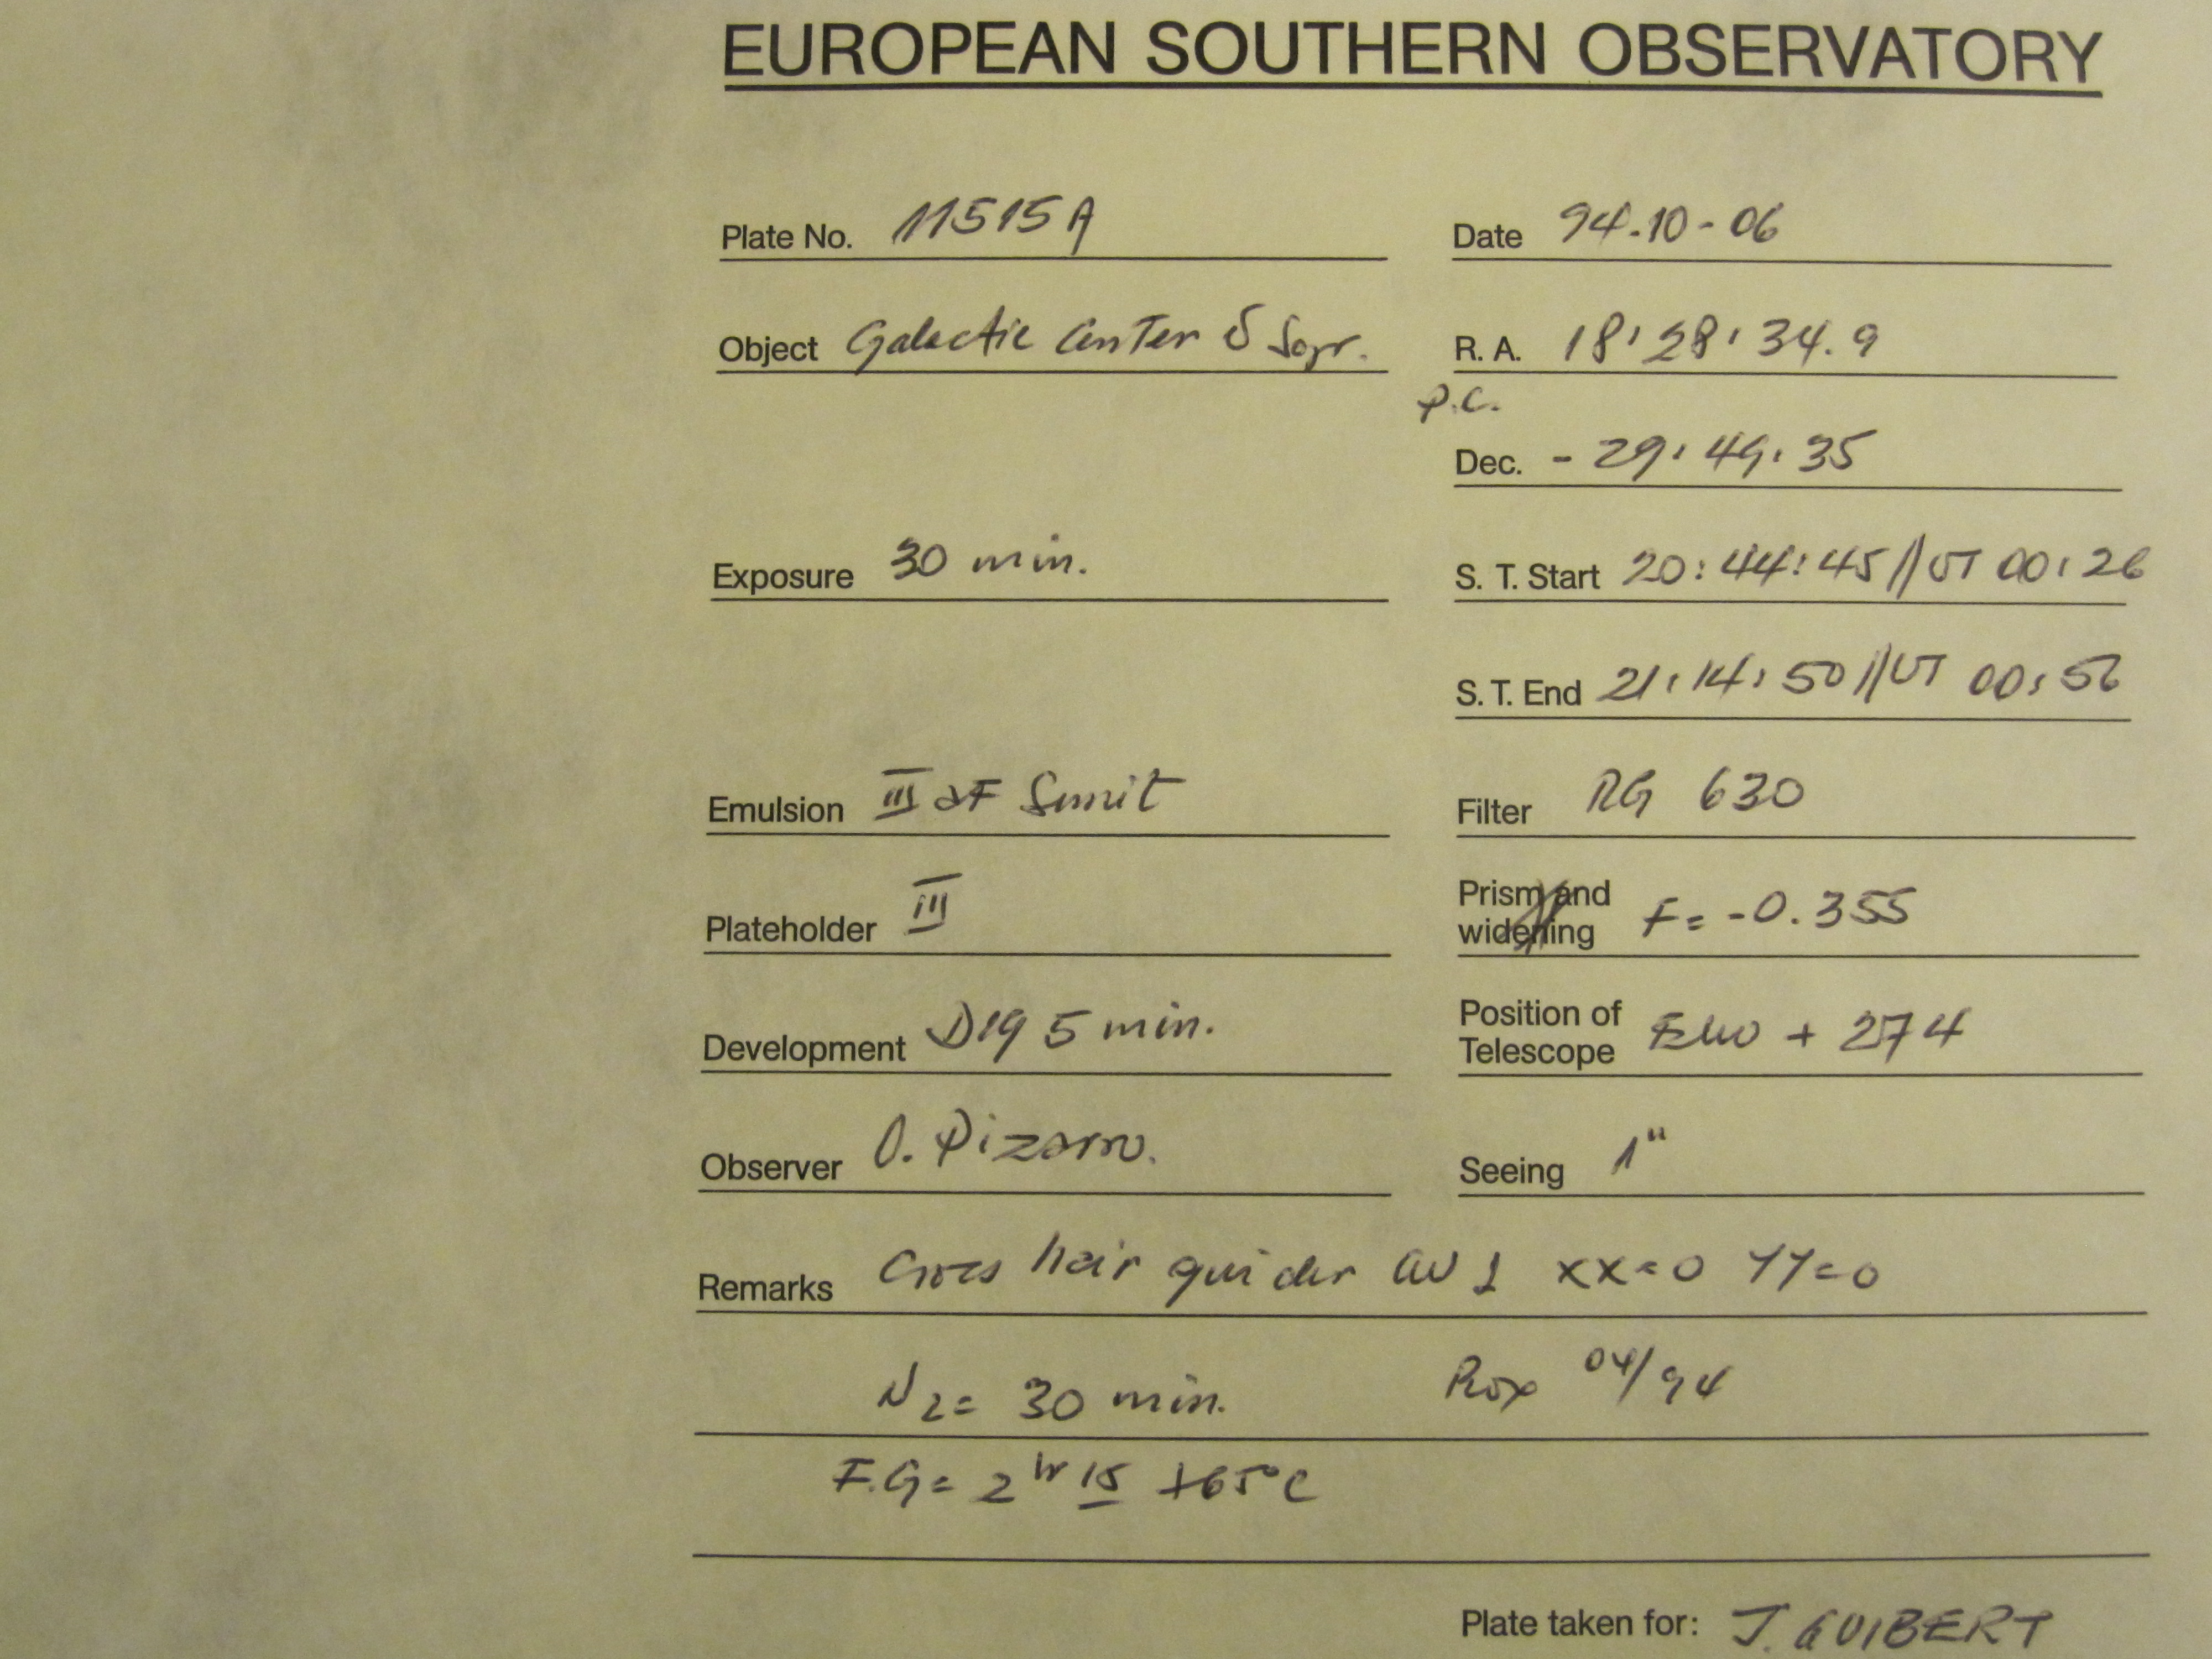 EUROPEAN SOUTHERN OBSERVATORY
Plate No. 11515A Date 94.10-06
Object Galactic Center R. A. 18:28:34.9
P.C.
Dec. - 29:49:35
Exposure 30 min. S. T. Start 20:44:45//UT 00:26
S. T. End 21:14:50//UT 00:56
Emulsion III aF Filter RG 630
Plateholder III Prism and widening F= -0.355
Development D19 5 min. Position of Telescope + 274
Observer O. Pizarro. Seeing 1"
Remarks Cross hair guider XX=0 YY=0
N2= 30 min. 04/94
F.G= 2hr 15 +65°C
Plate taken for: J. GUIBERT